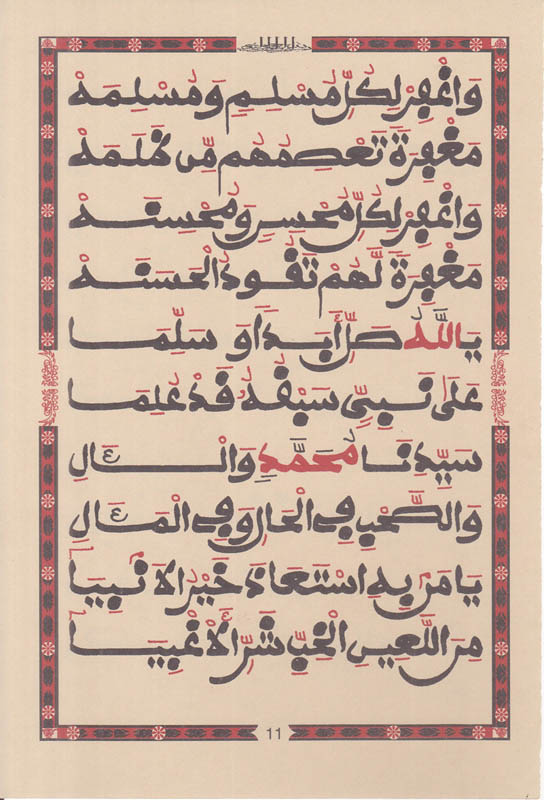 وَاغْفِرْ لِكُلِّ مُسْلِمٍ وَمُسْلِمَهْ
مَغْفِرَةً تَعْصِمُهُم مِّن ظُلَمَهْ
وَاغْفِرْ لِكُلِّ مُحْسِنٍ وَمُحْسِنَهْ
مَغْفِرَةً لَّهُمْ تَقُودُ الْحَسَنَهْ
يَا اللَّهُ صَلِّ أَبَدًا وَسَلِّمَا
عَلَى نَبِيٍّ سَبْقُهُ قَدْ عُلِمَا
سَيِّدِنَا مُحَمَّدٍ وَالْآلِ
وَالصَّحْبِ فِي الْحَالِ وَفِي الْمَآلِ
يَا مَن بِهِ اسْتَعَاذَ خَيْرُ الْأَنْبِيَا
مِنَ اللَّعِينِ الْخِبِّ شَرِّ الْأَغْبِيَا
11